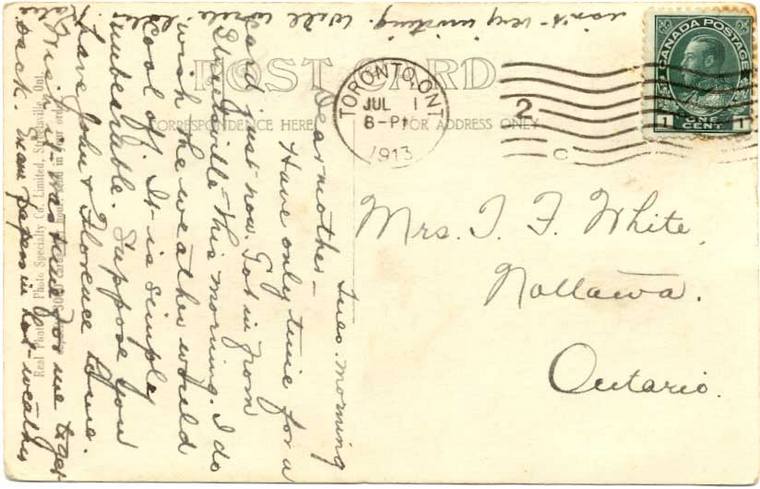 isn't very inviting. Will write
POST CARD
CORRESPONDENCE HERE
FOR ADDRESS ONLY
TORONTO, ONT
JUL 1
8-PM
1913
2
CANADA POSTAGE
1 ONE CENT 1
Mrs. T. F. White,
Nottawa.
Ontario.
Tues. morning
Dear mother-
Have only time for a
card just now. Got in from
Streetsville this morning. I do
wish the weather would
cool off. It is simply
unbearable. Suppose you
have John & Florence home.
Wish it was time for me to get
back. Exam papers in hot weather
Real Photo Specialty Co. Limited, Streetsville, Ont.